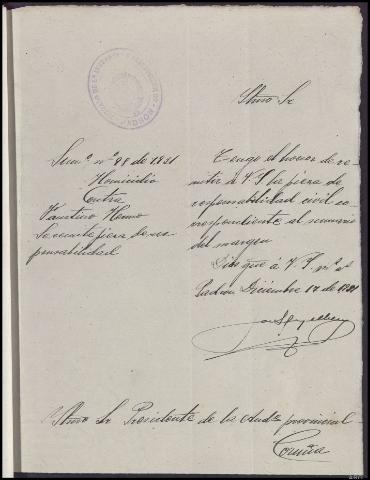 Iltmo Sr
Sumº nº 98 de 1921
Homicidio
Contra
Faustino
Se remite pieza de res-
ponsabilidad
Tengo el honor de re-
mitir á V.S la pieza de
responsabilidad civil co-
rrespondiente al sumario
del margen
Dios gue á V.S. ms as
Padron Diciembre 17 de 1921
Iltmo Sr Presidente de la Auda provincial
Coruña